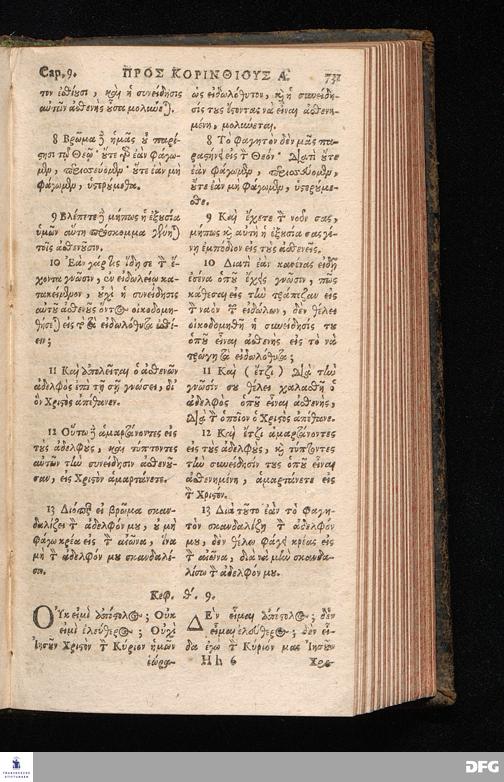 Cap. 9. ΠΡΟΣ ΚΟΡΙΝΘΙΟΥΣ Α. 731
τον ἐσθίουσι, καὶ ἡ συνείδησις
αὐτῶν ἀσθενὴς οὖσα μολύνε).
8 Βρῶμα δὲ ἡμᾶς οὐ παρί-
στησι τῷ Θεῷ· οὔτε γὰρ ἐὰν φάγω-
μεν, περισσεύομεν· οὔτε ἐὰν μὴ
φάγωμεν, ὑστερούμεθα.
9 Βλέπετε δὲ μήπως ἡ ἐξουσία
ὑμῶν αὕτη πρόσκομμα γένη)
τοῖς ἀσθενοῦσιν.
10 Ἐὰν γάρ τις ἴδῃ σε τὸν ἔ-
χοντα γνῶσιν, ἐν εἰδωλείῳ κα-
τακείμενον, οὐχὶ ἡ συνείδησις
αὐτοῦ ἀσθενοῦς ὄντος οἰκοδομη-
θήσε) εἰς τὸ τὰ εἰδωλόθυτα ἐσθί-
ειν;
11 Καὶ ἀπολεῖται ὁ ἀσθενῶν
ἀδελφὸς ἐπὶ τῇ σῇ γνώσει, δι'
ὃν Χριστὸς ἀπέθανεν.
12 Οὕτω δὲ ἁμαρτάνοντες εἰς
τοὺς ἀδελφοὺς, καὶ τύπτοντες
αὐτῶν τὴν συνείδησιν ἀσθενοῦ-
σαν, εἰς Χριστὸν ἁμαρτάνετε.
13 Διόπερ εἰ βρῶμα σκαν-
δαλίζει τὸν ἀδελφόν μου, οὐ μὴ
φάγω κρέα εἰς τὸν αἰῶνα, ἵνα
μὴ τὸν ἀδελφόν μου σκανδαλί-
σω.
ὡς εἰδωλόθυτον, καὶ ἡ συνείδη-
σίς τους ὄντας νὰ εἶναι ἀσθενη-
μένη, μολύνεται.
8 Τὸ φαγητὸν δὲν μᾶς πα-
ραστήνει εἰς τὸν Θεόν· Διατὶ οὔτε
ἐὰν φάγωμεν, περισσεύομεν,
οὔτε ἐὰν μὴ φάγωμεν, ὑστερούμε-
σθε.
9 Καὶ ἔχετε τὸν νοῦν σας,
μήπως καὶ αὐτὴ ἡ ἐξουσία σας γέ-
νῃ ἐμπόδιον εἰς τοὺς ἀσθενεῖς.
10 Διατὶ ἐὰν κανένας εἰδῇ
ἐσένα ὁποῦ ἔχεις γνῶσιν, πῶς
κάθεσαι εἰς τὴν τράπεζαν εἰς
τὸν ναὸν τῶν εἰδώλων, δὲν θέλει
οἰκοδομηθῆ ἡ συνείδησίς του
ὁποῦ εἶναι ἀσθενὴς εἰς τὸ νὰ
τρώγῃ τὰ εἰδωλόθυτα;
11 Καὶ (ἔτζι) διὰ τὴν
γνῶσίν σου θέλει χαλασθῆ ὁ
ἀδελφὸς ὁποῦ εἶναι ἀσθενής,
διὰ τὸν ὁποῖον ὁ Χριστὸς ἀπέθανε.
12 Καὶ ἔτζι ἁμαρτάνοντες
εἰς τοὺς ἀδελφοὺς, καὶ τύπτοντες
τὴν συνείδησίν τους ὁποῦ εἶναι
ἀσθενημένη, ἁμαρτάνετε εἰς
τὸν Χριστόν.
13 Διὰ τοῦτο ἐὰν τὸ φαγη-
τὸν σκανδαλίζῃ τὸν ἀδελφόν
μου, δὲν θέλω φάγῃ κρέας εἰς
τὸν αἰῶνα, διὰ νὰ μὴν σκανδα-
λίσω τὸν ἀδελφόν μου.
Κεφ. θ'. 9.
Οὐκ εἰμὶ ἀπόστολος; Οὐκ
εἰμὶ ἐλεύθερος; Οὐχὶ
Ἰησοῦν Χριστὸν τὸν Κύριον ἡμῶν
ἑώρα-
Δὲν εἶμαι ἀπόστολος; δὲν
εἶμαι ἐλεύθερος; δὲν εἶ-
δα ἐγὼ τὸν Κύριον μας Ἰησοῦν
Hh 6 Χρι-
FRANCKESCHE STIFTUNGEN
DFG